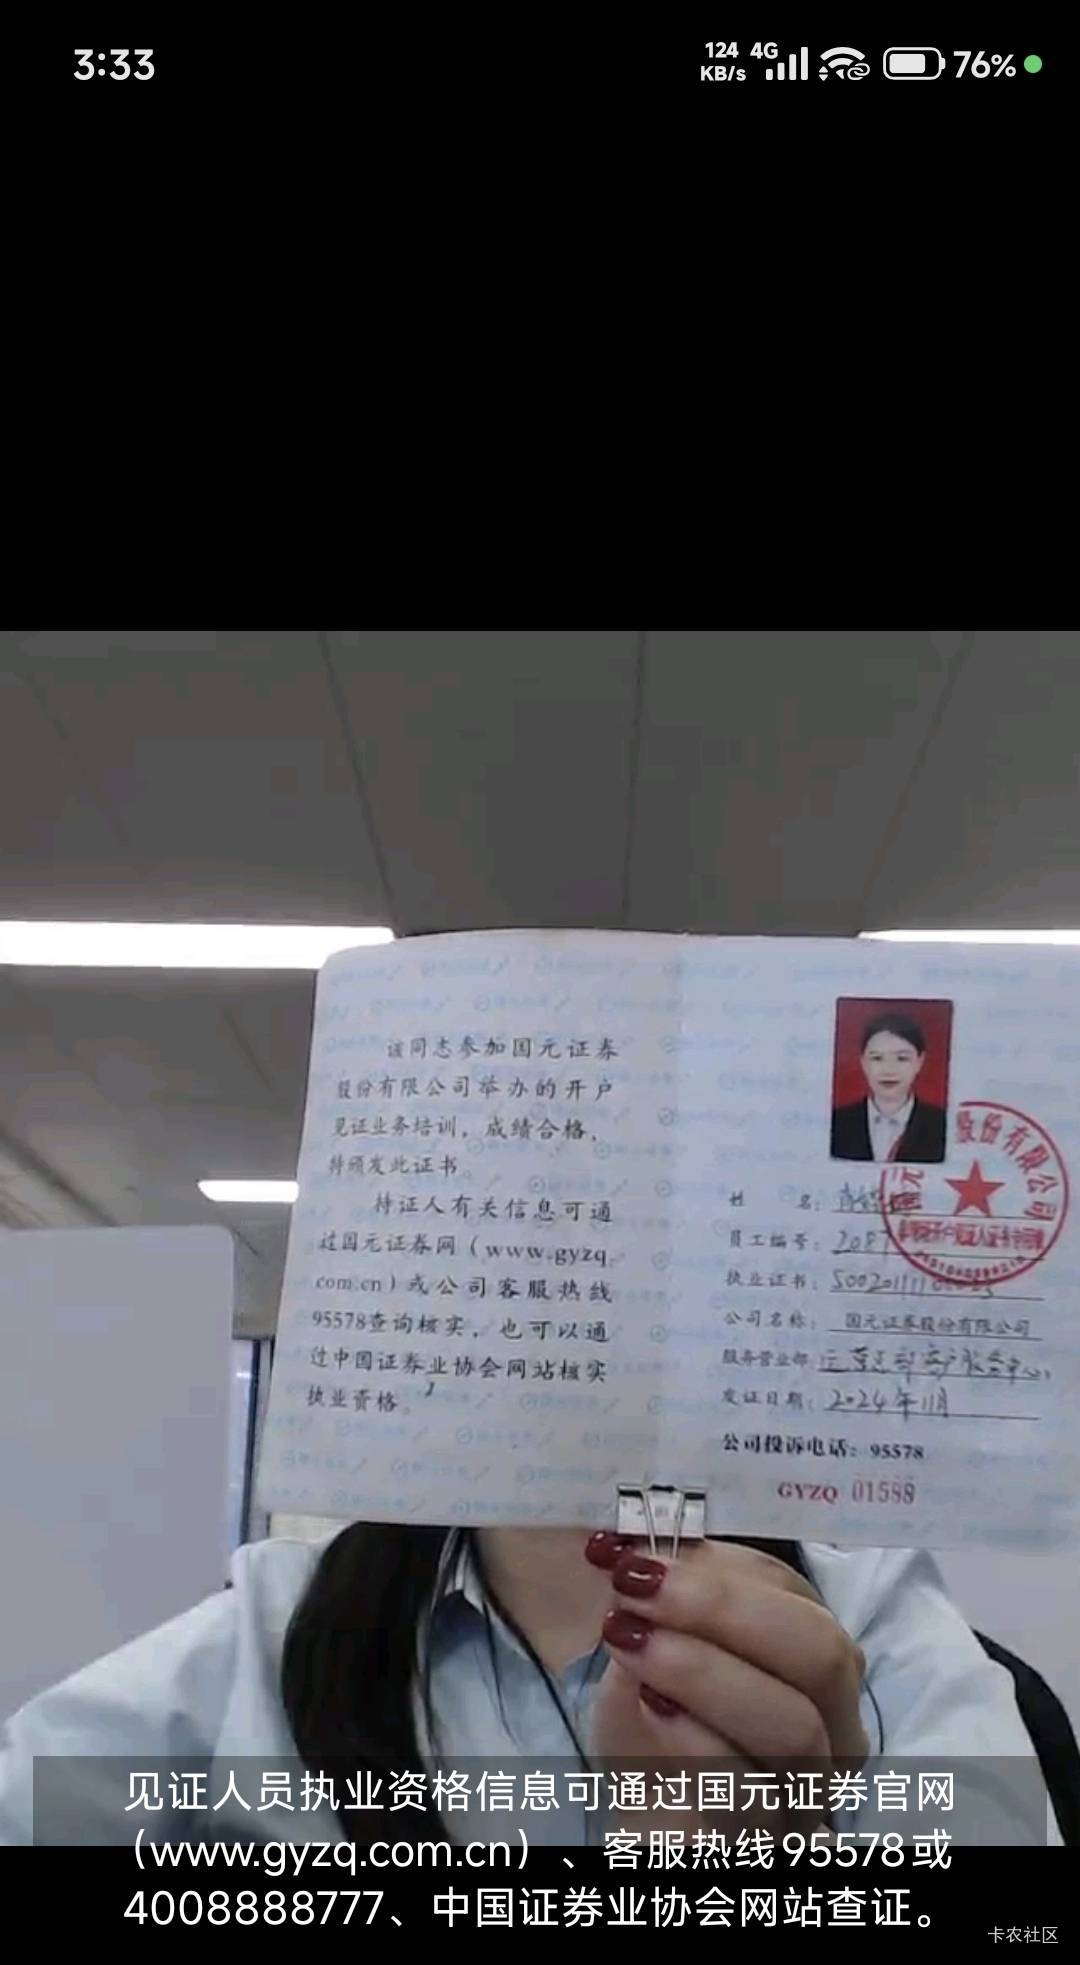 3:33
124 KB/s 4G 76%
该同志参加国元证券
股份有限公司举办的开户
见证业务培训，成绩合格，
特颁发此证书。
持证人有关信息可通
过国元证券网（www.gyzq.
com.cn）或公司客服热线
95578查询核实，也可以通
过中国证券业协会网站核实
执业资格。
股份有限公司
姓 名：
员工编号：
执业证书：
公司名称：国元证券股份有限公司
服务营业部：
发证日期：2024年11月
公司投诉电话：95578
GYZQ 01588
见证人员执业资格信息可通过国元证券官网
（www.gyzq.com.cn）、客服热线95578或
4008888777、中国证券业协会网站查证。
卡农社区